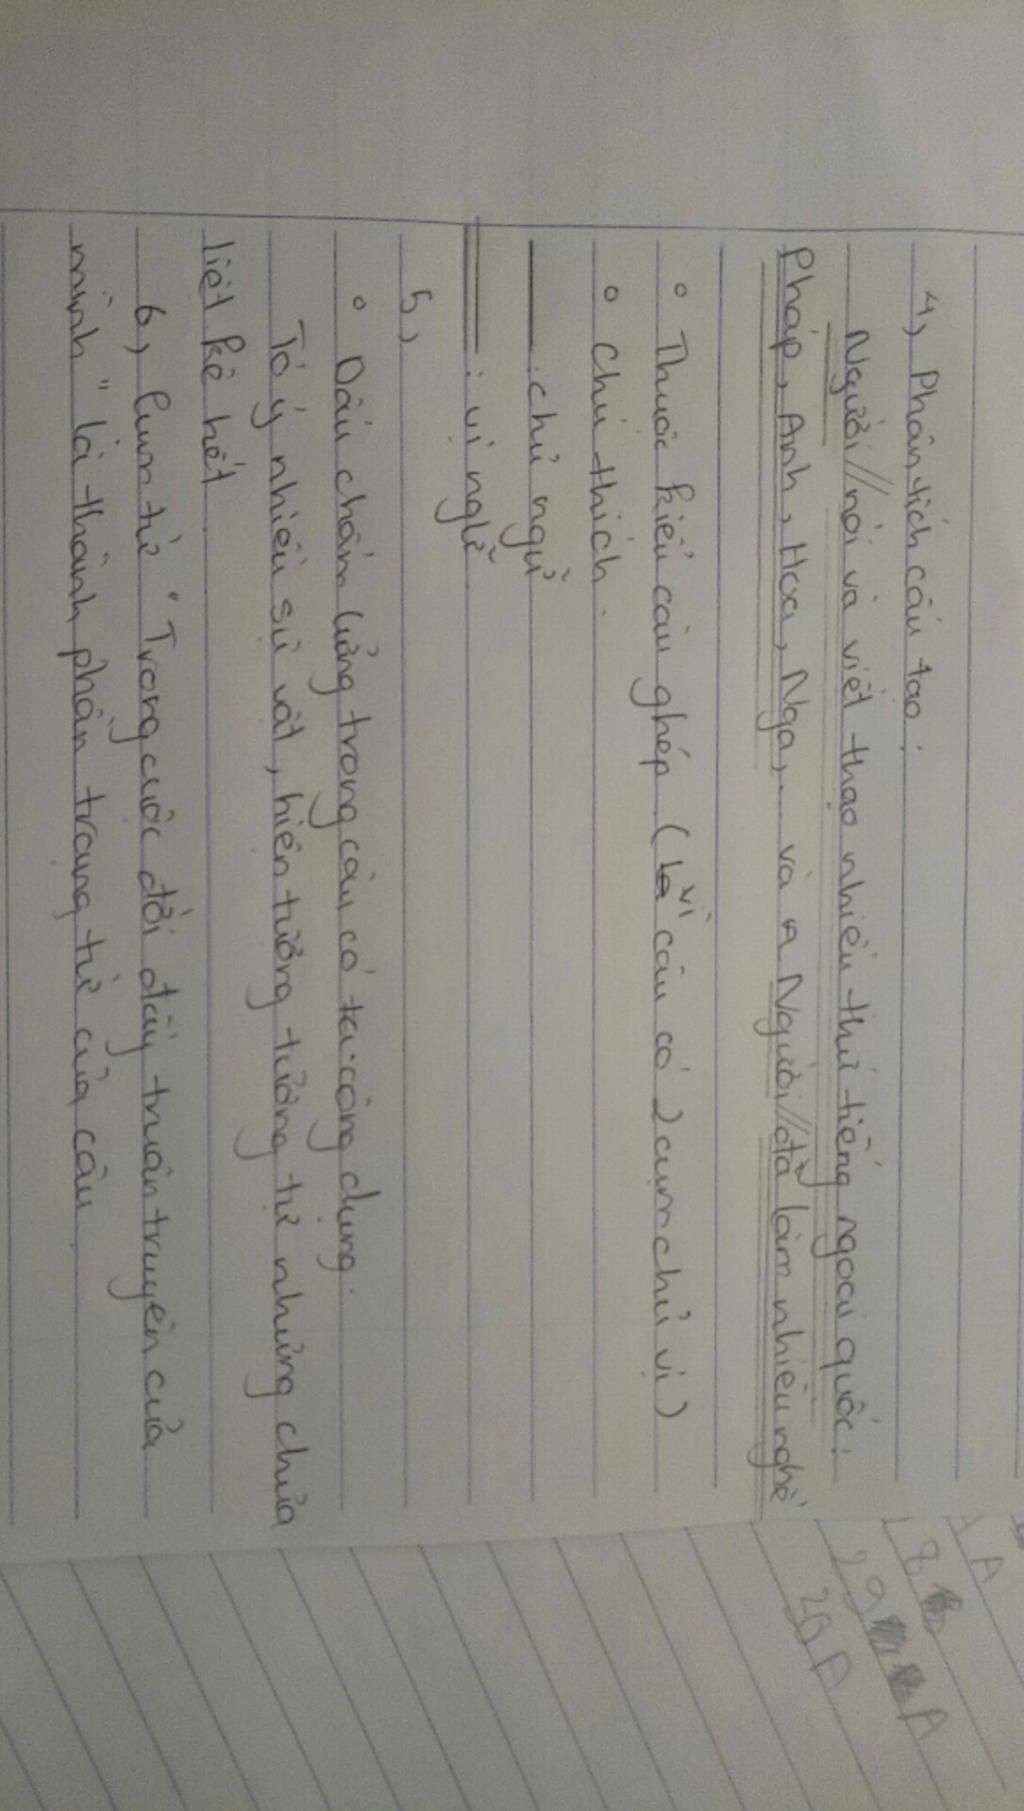 4, Phân tích cấu tạo:
Người // nói và viết thạo nhiều thứ tiếng ngoại quốc:
Pháp, Anh, Hoa, Nga,... và Người // đã làm nhiều nghề
° Thuộc kiểu câu ghép (vì câu có 2 cụm chủ vị)
° Chú thích.
: chủ ngữ
: vị ngữ
5,
° Dấu chấm lửng trong câu có tác công dụng.
Tỏ ý nhiều sự vật, hiện tượng tương tự nhưng chưa
liệt kê hết
6, Cụm từ "Trong cuộc đời đầy truân truyên của
mình" là thành phần trạng từ của câu.
1 A
18 A
29 A
30 A